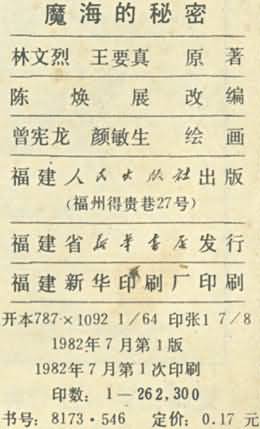 魔海的秘密
林文烈 王要真 原著
陈焕展 改编
曾宪龙 颜敏生 绘画
福建人民出版社出版
(福州得贵巷27号)
福建省新华书店发行
福建新华印刷厂印刷
开本787×1092 1/64 印张1 7/8
1982年7月第1版
1982年7月第1次印刷
印数：1—262,300
书号：8173·546 定价：0.17元